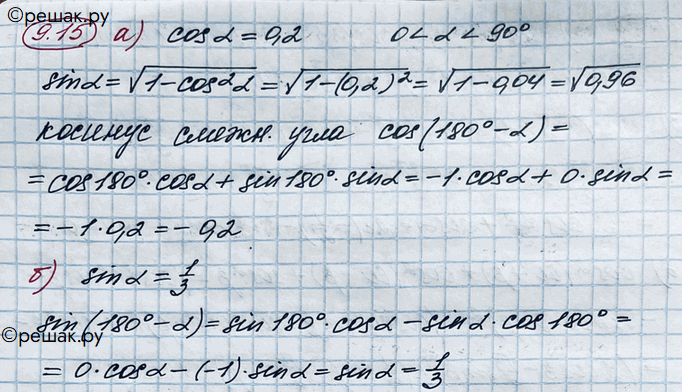 ©решак.ру
9.15 а) cos α = 0,2 0 < α < 90°
sin α = √(1-cos²α) = √(1-(0,2)²) = √(1-0,04) = √0,96
косинус смежн. угла cos(180°-α) =
= cos 180° · cos α + sin 180° · sin α = -1 · cos α + 0 · sin α =
= -1 · 0,2 = -0,2
б) sin α = 1/3
sin(180°-α) = sin 180° · cos α - sin α · cos 180° =
©решак.ру
= 0 · cos α - (-1) · sin α = sin α = 1/3